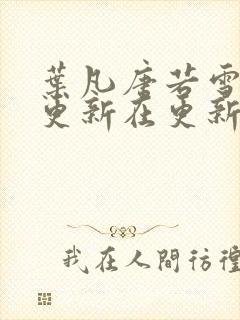 葉凡唐若雪
更新在更新
我在人間彷徨